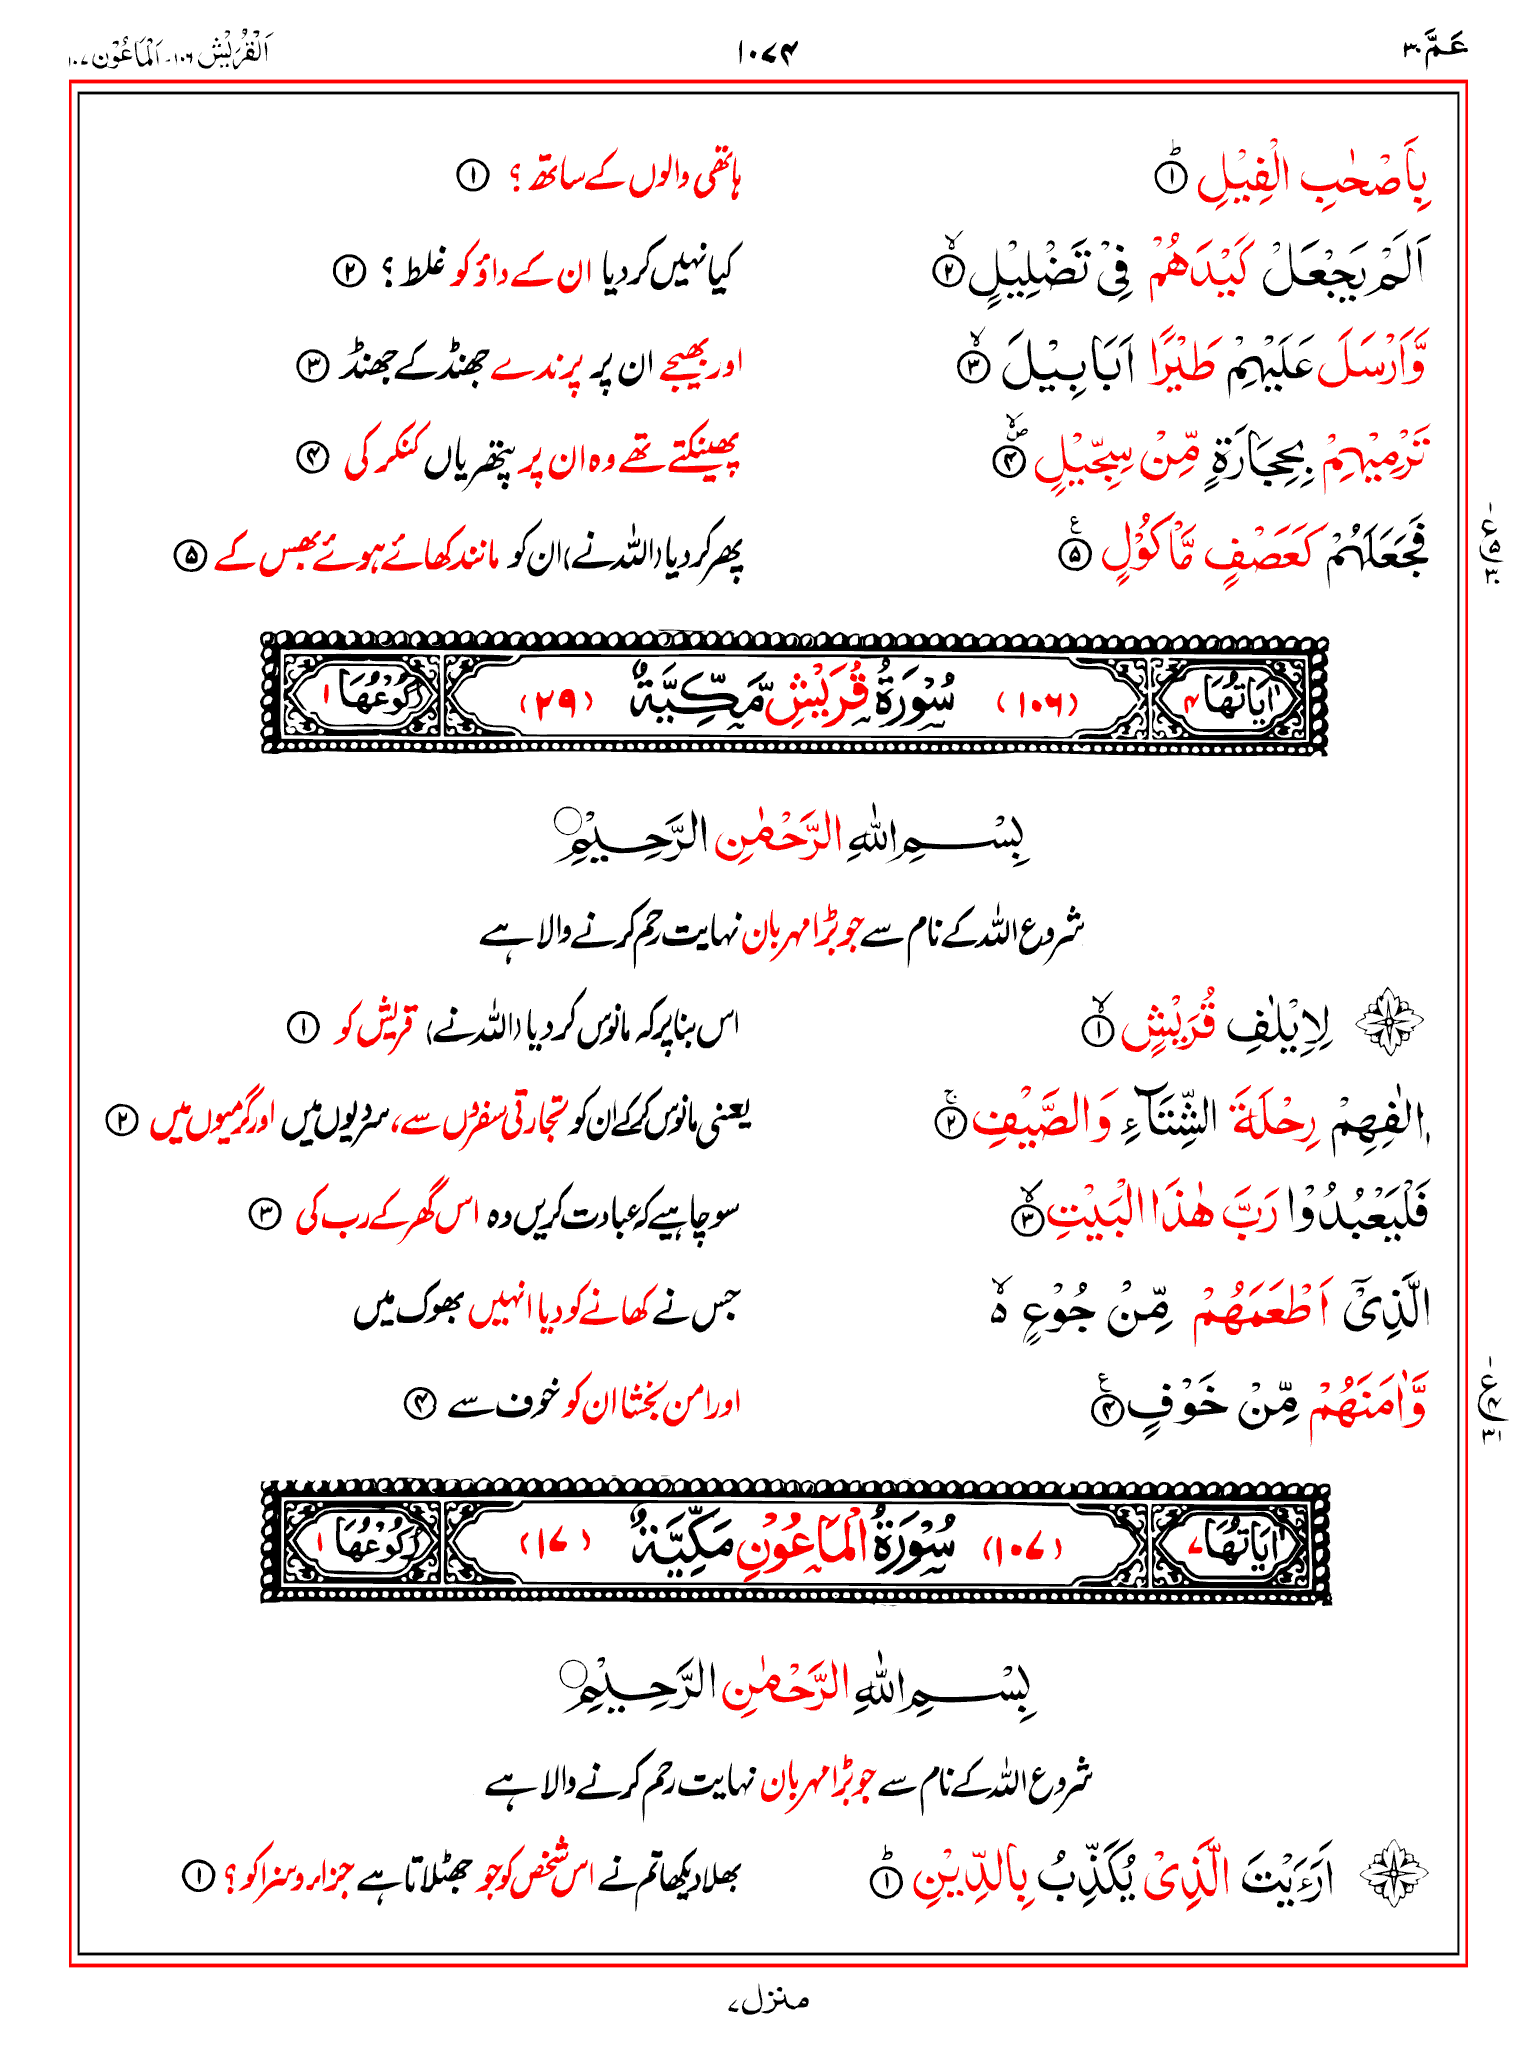 عَمَّ ۳۰
۱۰۷۴
اَلْقُرَیْش ۱۰۶۔ اَلْمَاعُوْن ۱۰۷
بِاَصْحٰبِ الْفِیْلِ ؕ ۱
ہاتھی والوں کے ساتھ ؟ ۱
اَلَمْ یَجْعَلْ كَیْدَهُمْ فِیْ تَضْلِیْلٍ ۙ ۲
کیا نہیں کر دیا ان کے داؤ کو غلط ؟ ۲
وَّاَرْسَلَ عَلَیْهِمْ طَیْرًا اَبَابِیْلَ ۙ ۳
اور بھیجے ان پر پرندے جھنڈ کے جھنڈ ۳
تَرْمِیْهِمْ بِحِجَارَةٍ مِّنْ سِجِّیْلٍ ۪ۙ ۴
پھینکتے تھے وہ ان پر پتھریاں کنکر کی ۴
فَجَعَلَهُمْ كَعَصْفٍ مَّاْكُوْلٍ ۵ ع
پھر کر دیا (اللہ نے) ان کو مانند کھائے ہوئے بھس کے ۵
۱
ع ۵
۳۰
اٰیَاتُهَا ۴
(۱۰۶) سُوْرَةُ قُرَیْشٍ مَّكِّیَّةٌ (۲۹)
رُكُوْعُهَا ۱
بِسْمِ اللّٰهِ الرَّحْمٰنِ الرَّحِیْمِ
شروع اللہ کے نام سے جو بڑا مہربان نہایت رحم کرنے والا ہے
لِاِیْلٰفِ قُرَیْشٍ ۙ ۱
اس بنا پر کہ مانوس کر دیا (اللہ نے) قریش کو ۱
اٖلٰفِهِمْ رِحْلَةَ الشِّتَآءِ وَالصَّیْفِ ۚ ۲
یعنی مانوس کر کے ان کو تجارتی سفروں سے، سردیوں میں اور گرمیوں میں ۲
فَلْیَعْبُدُوْا رَبَّ هٰذَا الْبَیْتِ ۙ ۳
سو چاہیے کہ عبادت کریں وہ اس گھر کے رب کی ۳
الَّذِیْۤ اَطْعَمَهُمْ مِّنْ جُوْعٍ ۙ۬
جس نے کھانے کو دیا انہیں بھوک میں
وَّاٰمَنَهُمْ مِّنْ خَوْفٍ ۴ ع
اور امن بخشا ان کو خوف سے ۴
۱
ع ۴
۳۱
اٰیَاتُهَا ۷
(۱۰۷) سُوْرَةُ الْمَاعُوْنِ مَكِّیَّةٌ (۱۷)
رُكُوْعُهَا ۱
بِسْمِ اللّٰهِ الرَّحْمٰنِ الرَّحِیْمِ
شروع اللہ کے نام سے جو بڑا مہربان نہایت رحم کرنے والا ہے
اَرَءَیْتَ الَّذِیْ یُكَذِّبُ بِالدِّیْنِ ؕ ۱
بھلا دیکھا تم نے اس شخص کو جو جھٹلاتا ہے جزا ر و سزا کو ؟ ۱
منزل ۷